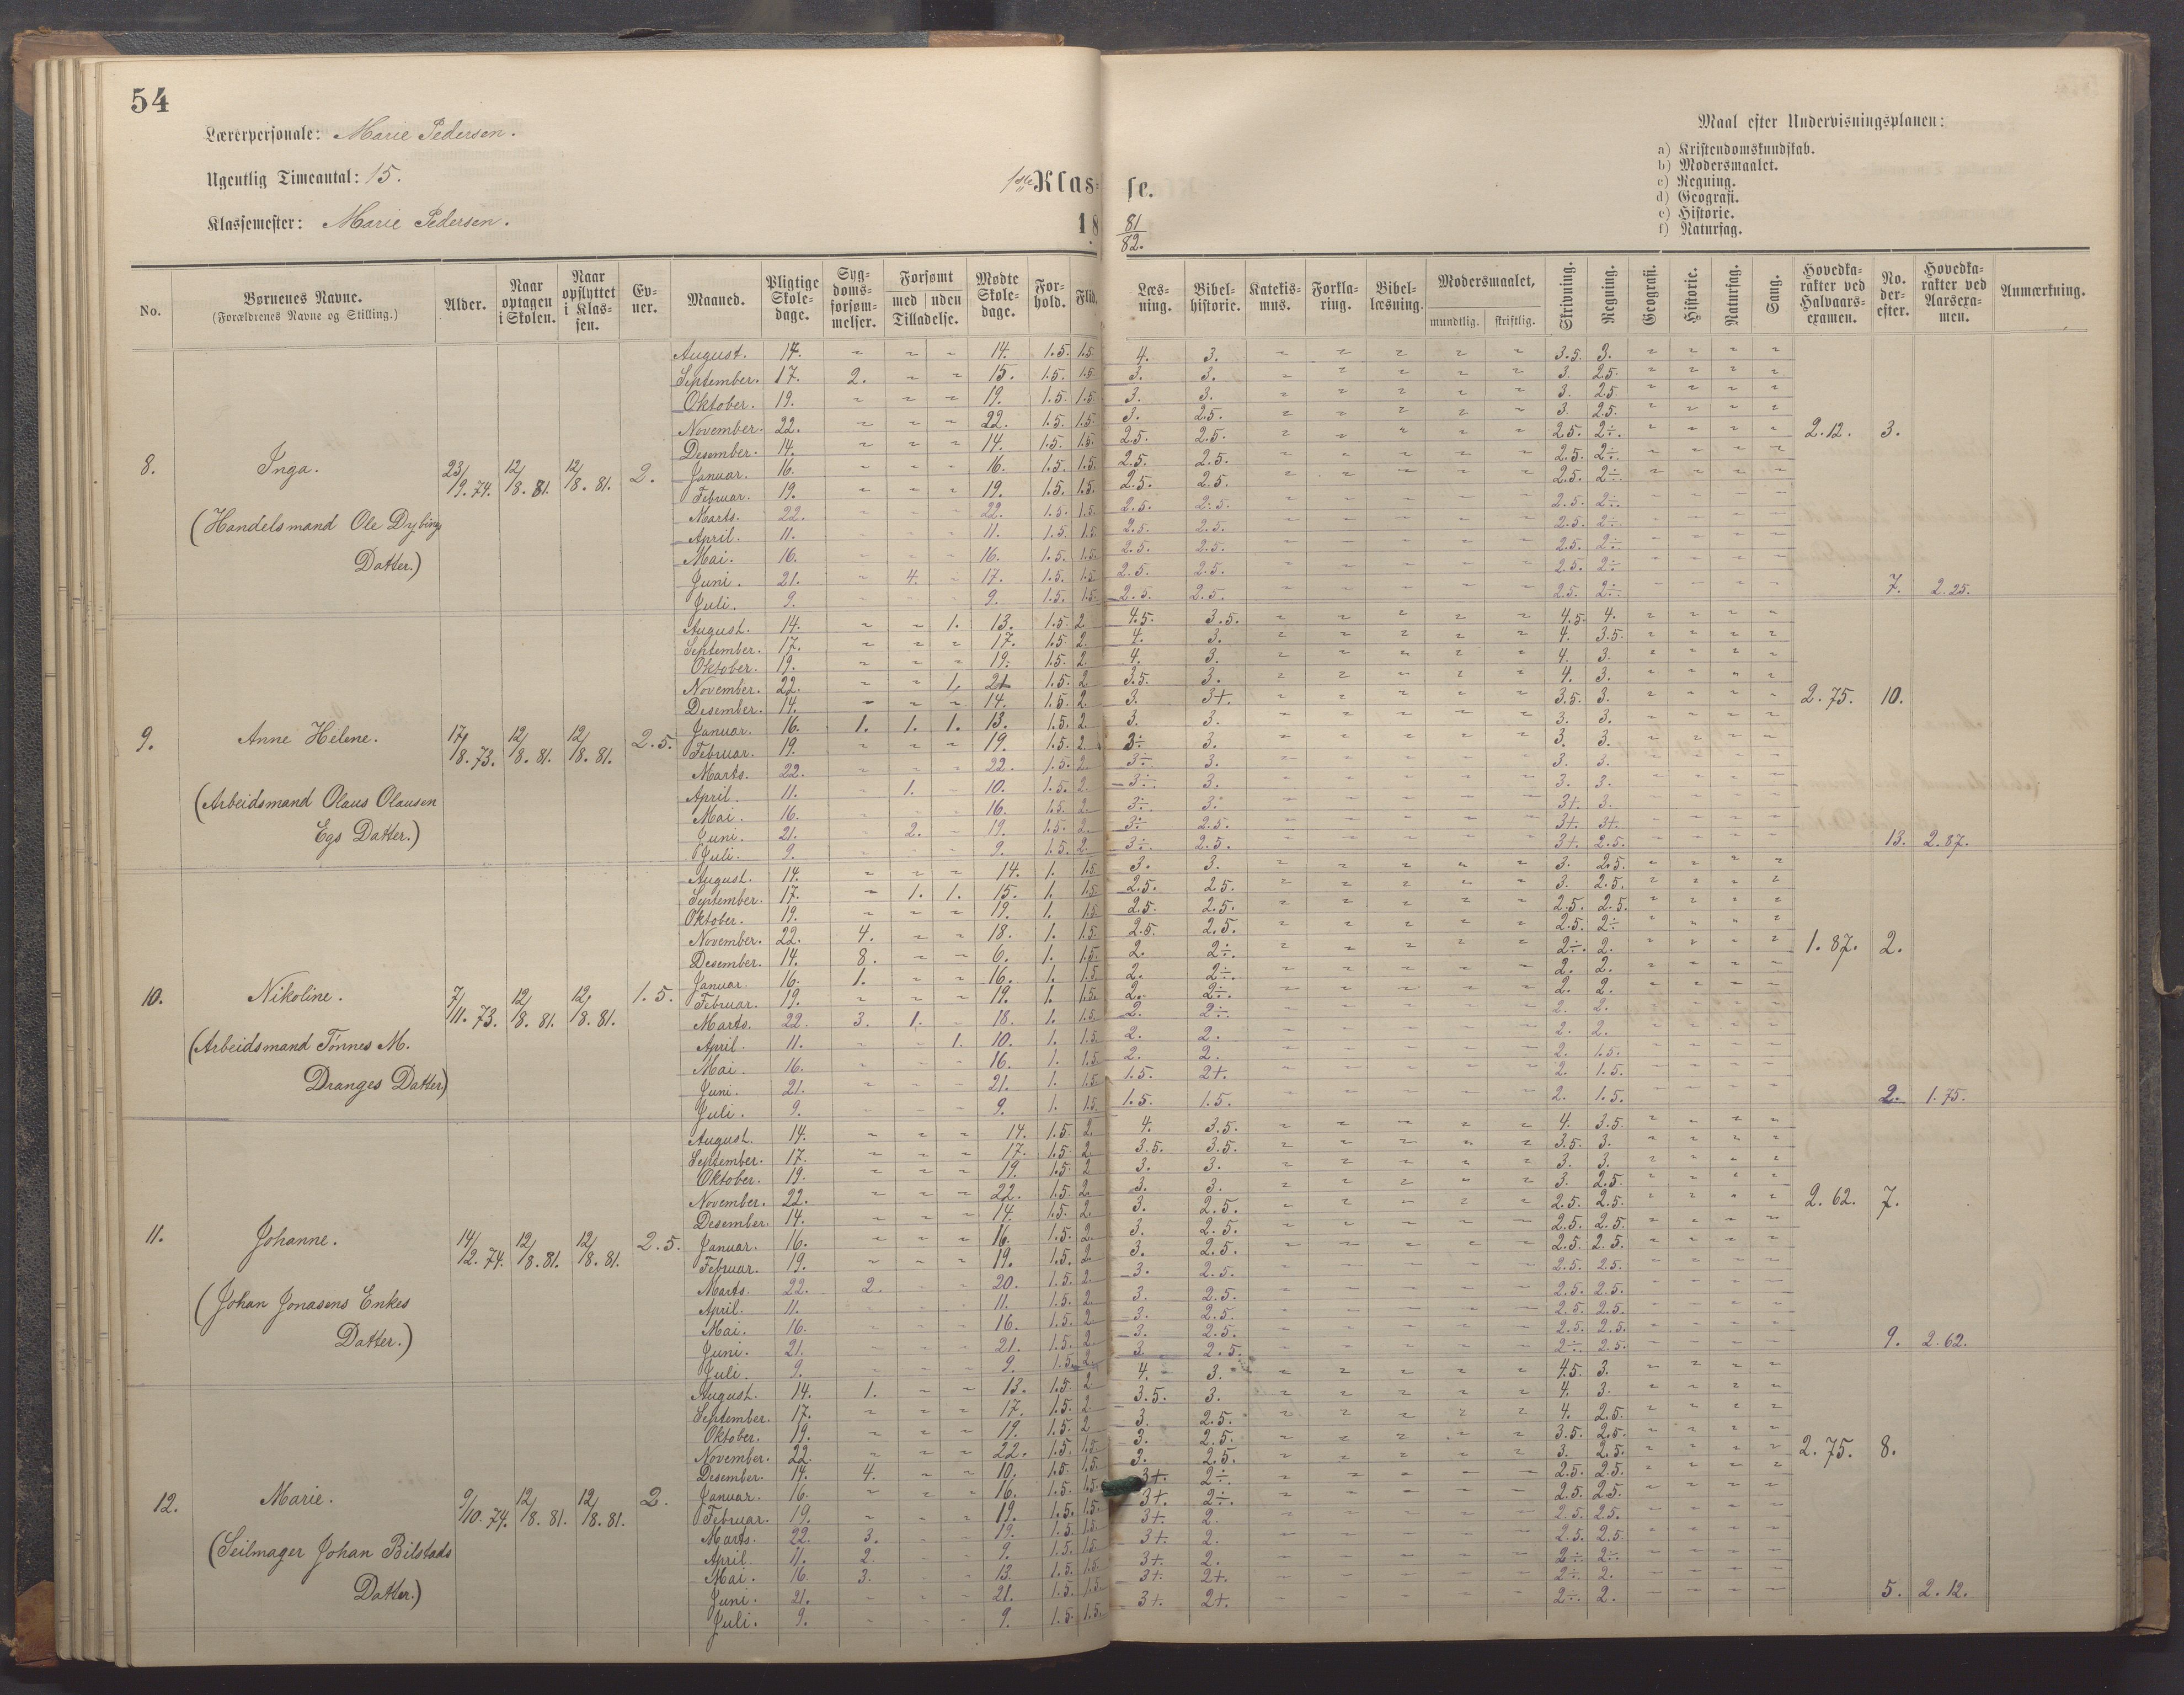 54
Lærerpersonale: Marie Pedersen.
Ugentlig Timeantal: 15.
Klassemester: Marie Pedersen.
1ste Klasse.
18 81/82.
Maal efter Undervisningsplanen:
a) Kristendomskundskab.
b) Modersmaalet.
c) Regning.
d) Geografi.
e) Historie.
f) Naturfag.
No. Børnenes Navne. (Forældrenes Navne og Stilling.) Alder. Naar optagen i Skolen. Naar opflyttet i Klassen. Evner. Maaned. Pligtige Skoledage. Sygdomsforsømmelser. Forsømt med uden Tilladelse. Mødte Skoledage. Forhold. Flid. Læsning. Bibelhistorie. Katekismus. Forklaring. Bibellæsning. Modersmaalet, mundtlig. skriftlig. Skrivning. Regning. Geografi. Historie. Naturfag. Sang. Hovedkarakter ved Halvaarsexamen. No. derefter. Hovedkarakter ved Aarsexamen. Anmærkning.
8. Inga. 23/9. 74. 12/8. 81. 12/8. 81. 2.
(Handelsmand Ole Dybing
Datter.)
August. 14. " " " 14. 1.5. 1.5. 4. 3. " " " " " 3.5. 3. " " " "
September. 17. 2. " " 15. 1.5. 1.5. 3. 3. " " " " " 3. 2.5. " " " "
Oktober. 19. " " " 19. 1.5. 1.5. 3. 3. " " " " " 3. 2.5. " " " "
November. 22. " " " 22. 1.5. 1.5. 3. 2.5. " " " " " 3. 2.5. " " " "
Desember. 14. " " " 14. 1.5. 1.5. 2.5. 2.5. " " " " " 2.5. 2÷. " " " " 2.12. 3.
Januar. 16. " " " 16. 1.5. 1.5. 2.5. 2.5. " " " " " 2.5. 2÷. " " " "
Februar. 19. " " " 19. 1.5. 1.5. 2.5. 2.5. " " " " " 2.5. 2÷. " " " "
Marts. 22. " " " 22. 1.5. 1.5. 2.5. 2.5. " " " " " 2.5. 2÷. " " " "
April. 11. " " " 11. 1.5. 1.5. 2.5. 2.5. " " " " " 2.5. 2÷. " " " "
Mai. 16. " " " 16. 1.5. 1.5. 2.5. 2.5. " " " " " 2.5. 2÷. " " " "
Juni. 21. " 4. " 17. 1.5. 1.5. 2.5. 2.5. " " " " " 2.5. 2÷ " " " "
Juli. 9. " " " 9. 1.5. 1.5. 2.5. 2.5. " " " " " 2.5. 2÷. " " " " 7. 2.25.
9. Anne Helene. 17/8. 73. 12/8. 81. 12/8. 81. 2.5.
(Arbeidsmand Olaus Olausen
Egs Datter.)
August. 14. " " 1. 13. 1.5. 2. 4.5. 3.5. " " " " " 4.5. 4. " " " "
September. 17. " " " 17. 1.5 2. 4. 3. " " " " " 4. 3.5. " " " "
Oktober. 19. " " " 19. 1.5. 2. 4. 3. " " " " " 4. 3. " " " "
November. 22. " " 1. 21. 1.5. 2. 3.5. 3. " " " " " 4. 3. " " " "
Desember. 14. " " " 14. 1.5. 2. 3. 3+. " " " " " 3.5. 3. " " " " 2.75. 10.
Januar. 16. 1. 1. 1. 13. 1.5. 2. 3. 3. " " " " " 3. 3. " " " "
Februar. 19. " " " 19. 1.5. 2. 3÷. 3. " " " " " 3. 3. " " " "
Marts. 22. " " " 22. 1.5. 2. 3÷. 3. " " " " " 3. 3. " " " "
April. 11. " 1. " 10. 1.5. 2. 3÷. 3. " " " " " 3. 3. " " " "
Mai. 16. " " " 16. 1.5. 2. 3÷. 3. " " " " " 3+. 3. " " " "
Juni. 21. " 2. " 19. 1.5. 2. 3÷. 2.5. " " " " " 3+. 3+. " " " "
Juli. 9. " " " 9. 1.5. 2. 3÷. 2.5. " " " " " 3+. 2.5. " " " " 13. 2.87.
10. Nikoline. 7/11. 73. 12/8. 81. 12/8. 81. 1.5.
(Arbeidsmand Tønnes M.
Dranges Datter)
August. 14. " " " 14. 1. 1.5 3. 3. " " " " " 3. 2.5. " " " "
September. 17. " 1. 1. 15. 1. 1.5 2.5. 2.5. " " " " " 3. 2.5. " " " "
Oktober. 19. " " " 19. 1. 1.5. 2.5. 2.5. " " " " " 2.5. 2.5. " " " "
November. 22. 4. " " 18. 1. 1.5. 2.5. 2.5. " " " " " 2.5. 2÷ " " " "
Desember. 14. 8. " " 6. 1. 1.5. 2. 2÷. " " " " " 2÷. 2. " " " " 1.87. 2.
Januar. 16. 1. " " 16. 1. 1.5 2. 2÷. " " " " " 2. 2. " " " "
Februar. 19. " " " 19. 1. 1.5. 2. 2÷. " " " " " 2. 2. " " " "
Marts. 22. 3. 1. " 18. 1. 1.5. 2. 2÷. " " " " " 2. 2. " " " "
April. 11. " " 1. 10. 1. 1.5 2. 2. " " " " " 2. 2. " " " "
Mai. 16. " " " 16. 1. 1.5 2. 2. " " " " " 2. 1.5. " " " "
Juni. 21. " " " 21. 1. 1.5 1.5. 2+. " " " " " 2. 1.5. " " " "
Juli. 9. " " " 9. 1. 1.5. 1.5. 1.5. " " " " " 2. 1.5. " " " " 2. 1.75.
11. Johanne. 14/12. 74. 12/8. 81. 12/8. 81. 2.5.
(Johan Jonasens Enkes
Datter.)
August. 14. " " " 14. 1.5. 2. 4. 3.5. " " " " " 4. 3.5. " " " "
September. 17. " " " 17. 1.5 2. 3.5. 3.5. " " " " " 3.5. 3. " " " "
Oktober. 19. " " " 19. 1.5 2. 3. 3. " " " " " 3. 3. " " " "
November. 22. " " " 22. 1.5. 2. 3. 3. " " " " " 3. 2.5. " " " "
Desember. 14. " " " 14. 1.5. 2. 3. 2.5. " " " " " 2.5. 2.5. " " " " 2.62. 7.
Januar. 16. " " " 16. 1.5. 2. 3. 2.5. " " " " " 2.5. 2.5. " " " "
Februar. 19. " " " 19. 1.5. 2. 3. 2.5. " " " " " 2.5. 2.5. " " " "
Marts. 22. 2. " " 20. 1.5. 2. 3. 2.5. " " " " " 2.5. 2.5. " " " "
April. 11. " " " 11. 1.5. 2. 3. 2.5. " " " " " 2.5. 2.5. " " " "
Mai. 16. " " " 16. 1.5. 2. 3. 2.5. " " " " " 2.5. 2.5. " " " "
Juni. 21. " " " 21. 1.5. 2. 3. 2.5. " " " " " 2.5. 2.5. " " " "
Juli. 9. " " " 9. 1.5. 2. 3. 2.5. " " " " " 2÷. 2.5. " " " " 9. 2.62.
12. Marie. 9/10. 74. 12/8. 81. 12/8. 81. 2.
(Seilmager Johan Bilstads
Datter.)
August. 14. 1. " " 13. 1.5. 2 4. 3. " " " " " 4.5 3. " " " "
September. 17. " " " 17. 1.5. 2 3.5. 3. " " " " " 4. 3. " " " "
Oktober. 19. " " " 19. 1.5. 2 3. 2.5. " " " " " 4. 2.5. " " " "
November. 22. " " " 22. 1.5. 1.5. 3. 2.5. " " " " " 3.5. 2.5. " " " "
Desember. 14. 4. " " 10. 1.5. 1.5. 3. 2.5. " " " " " 3. 2.5. " " " " 2.75. 8.
Januar. 16. " " " 16. 1.5. 1.5. 3+. 2÷. " " " " " 2.5. 2.5. " " " "
Februar. 19. " " " 19. 1.5. 1.5. 3+. 2÷. " " " " " 2.5. 2.5. " " " "
Marts. 22. 3. " " 19. 1.5. 1.5. 3+. 2. " " " " " 2.5. 2.5. " " " "
April. 11. 2. " " 9. 1.5. 1.5. 3+. 2. " " " " " 2.5. 2.5. " " " "
Mai. 16. 3. " " 13. 1.5. 1.5. 3+. 2. " " " " " 2÷. 2÷. " " " "
Juni. 21. " " " 21. 1.5. 1.5. 3+. 2+. " " " " " 2÷. 2. " " " "
Juli. 9. " " " 9. 1.5. 1.5. 3+. 2+. " " " " " 2÷. 2. " " " " 5. 2.12.